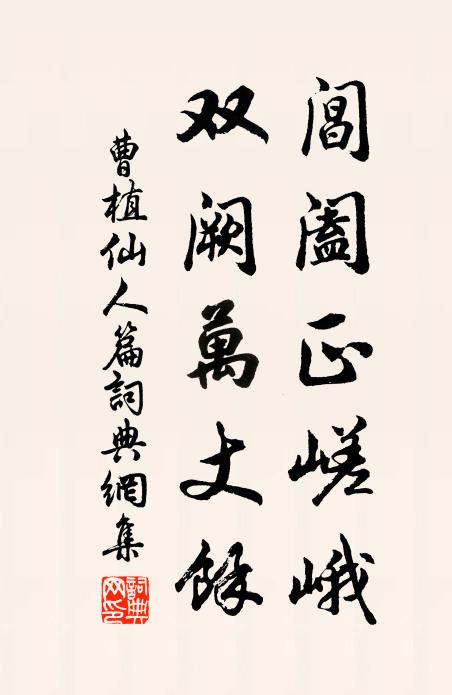 閶阖正嵯峨
双阙萬丈餘
曹植仙人篇詞典網集
詞典网印